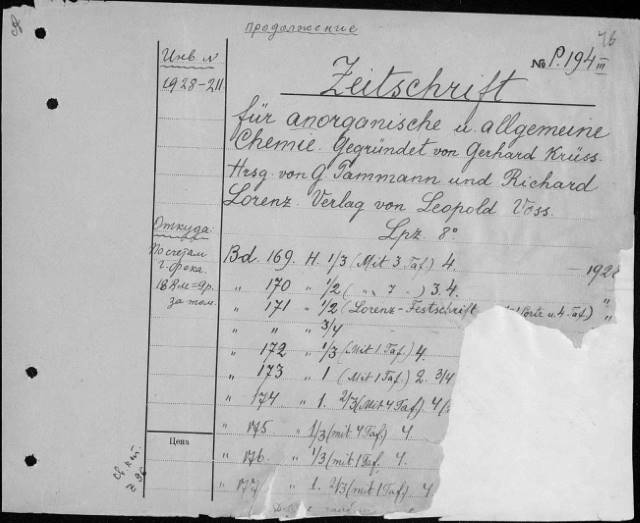 продолжение
76
Инв. №
1928-211
№ P.194 III
Zeitschrift
für anorganische u. allgemeine
Chemie. Gegründet von Gerhard Krüss.
Hrsg. von G. Tammann und Richard
Lorenz. Verlag von Leopold Voss.
Lpz. 8°
Откуда:
По счетам
за том.
Bd. 169. H. 1/3 (Mit 3 Taf) 4. — 1928
" 170 " 1/2 ( " 7 " ) 3 4. "
" 171 " 1/2 (Lorenz-Festschrift u. 4 Taf) "
" " " 3/4
" 172 " 1/3 (Mit 1 Taf.) 4.
" 173 " 1 (Mit 1 Taf.) 2. 3/4
" 174 " 1. 2/3 (Mit 4 Taf) 4
" 175 " 1/3 (mit 4 Taf) 4.
" 176. " 1/3 (mit 1 Taf. 4.
" 177 " 1. 2/3 (mit 1 Taf) 4
Цена